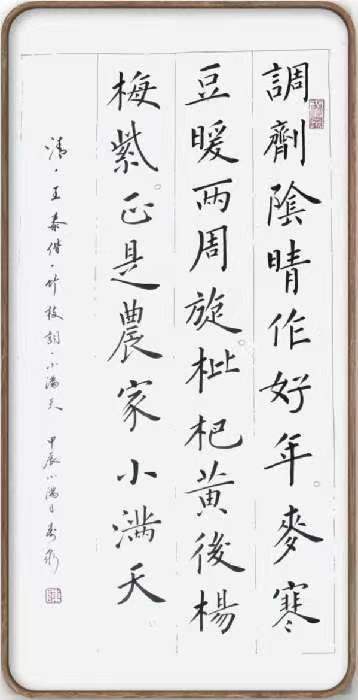 調劑陰晴作好年。麥寒
豆暖兩周旋。枇杷黃後楊
梅紫。正是農家小滿天
清·王泰偕·竹枝詞·小滿天 甲辰小滿日